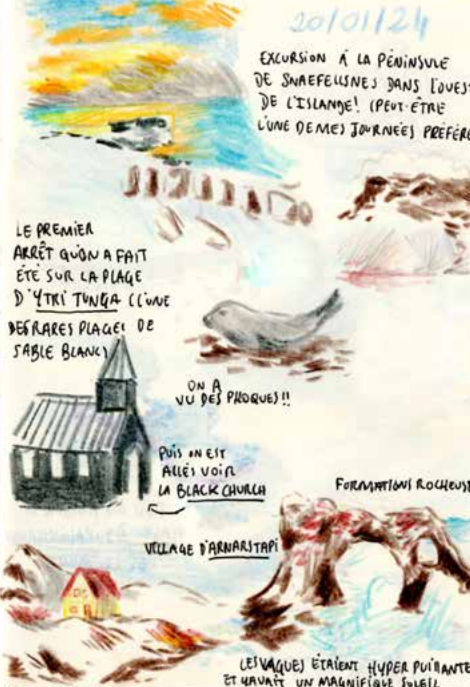 20/01/24
EXCURSION À LA PÉNINSULE
DE SNAEFELLSNES DANS L'OUEST
DE L'ISLANDE! (PEUT-ÊTRE
L'UNE DE MES JOURNÉES PRÉFÉRÉ
LE PREMIER
ARRÊT QU'ON A FAIT
ÉTÉ SUR LA PLAGE
D'YTRI TUNGA (L'UNE
DES RARES PLAGES DE
SABLE BLANC)
ON A
VU DES PHOQUES!!
PUIS ON EST
ALLÉS VOIR
LA BLACK CHURCH
FORMATIONS ROCHEUSE
VILLAGE D'ARNARSTAPI
LES VAGUES ÉTAIENT HYPER PUISSANTE
ET Y AVAIT UN MAGNIFIQUE SOLEIL